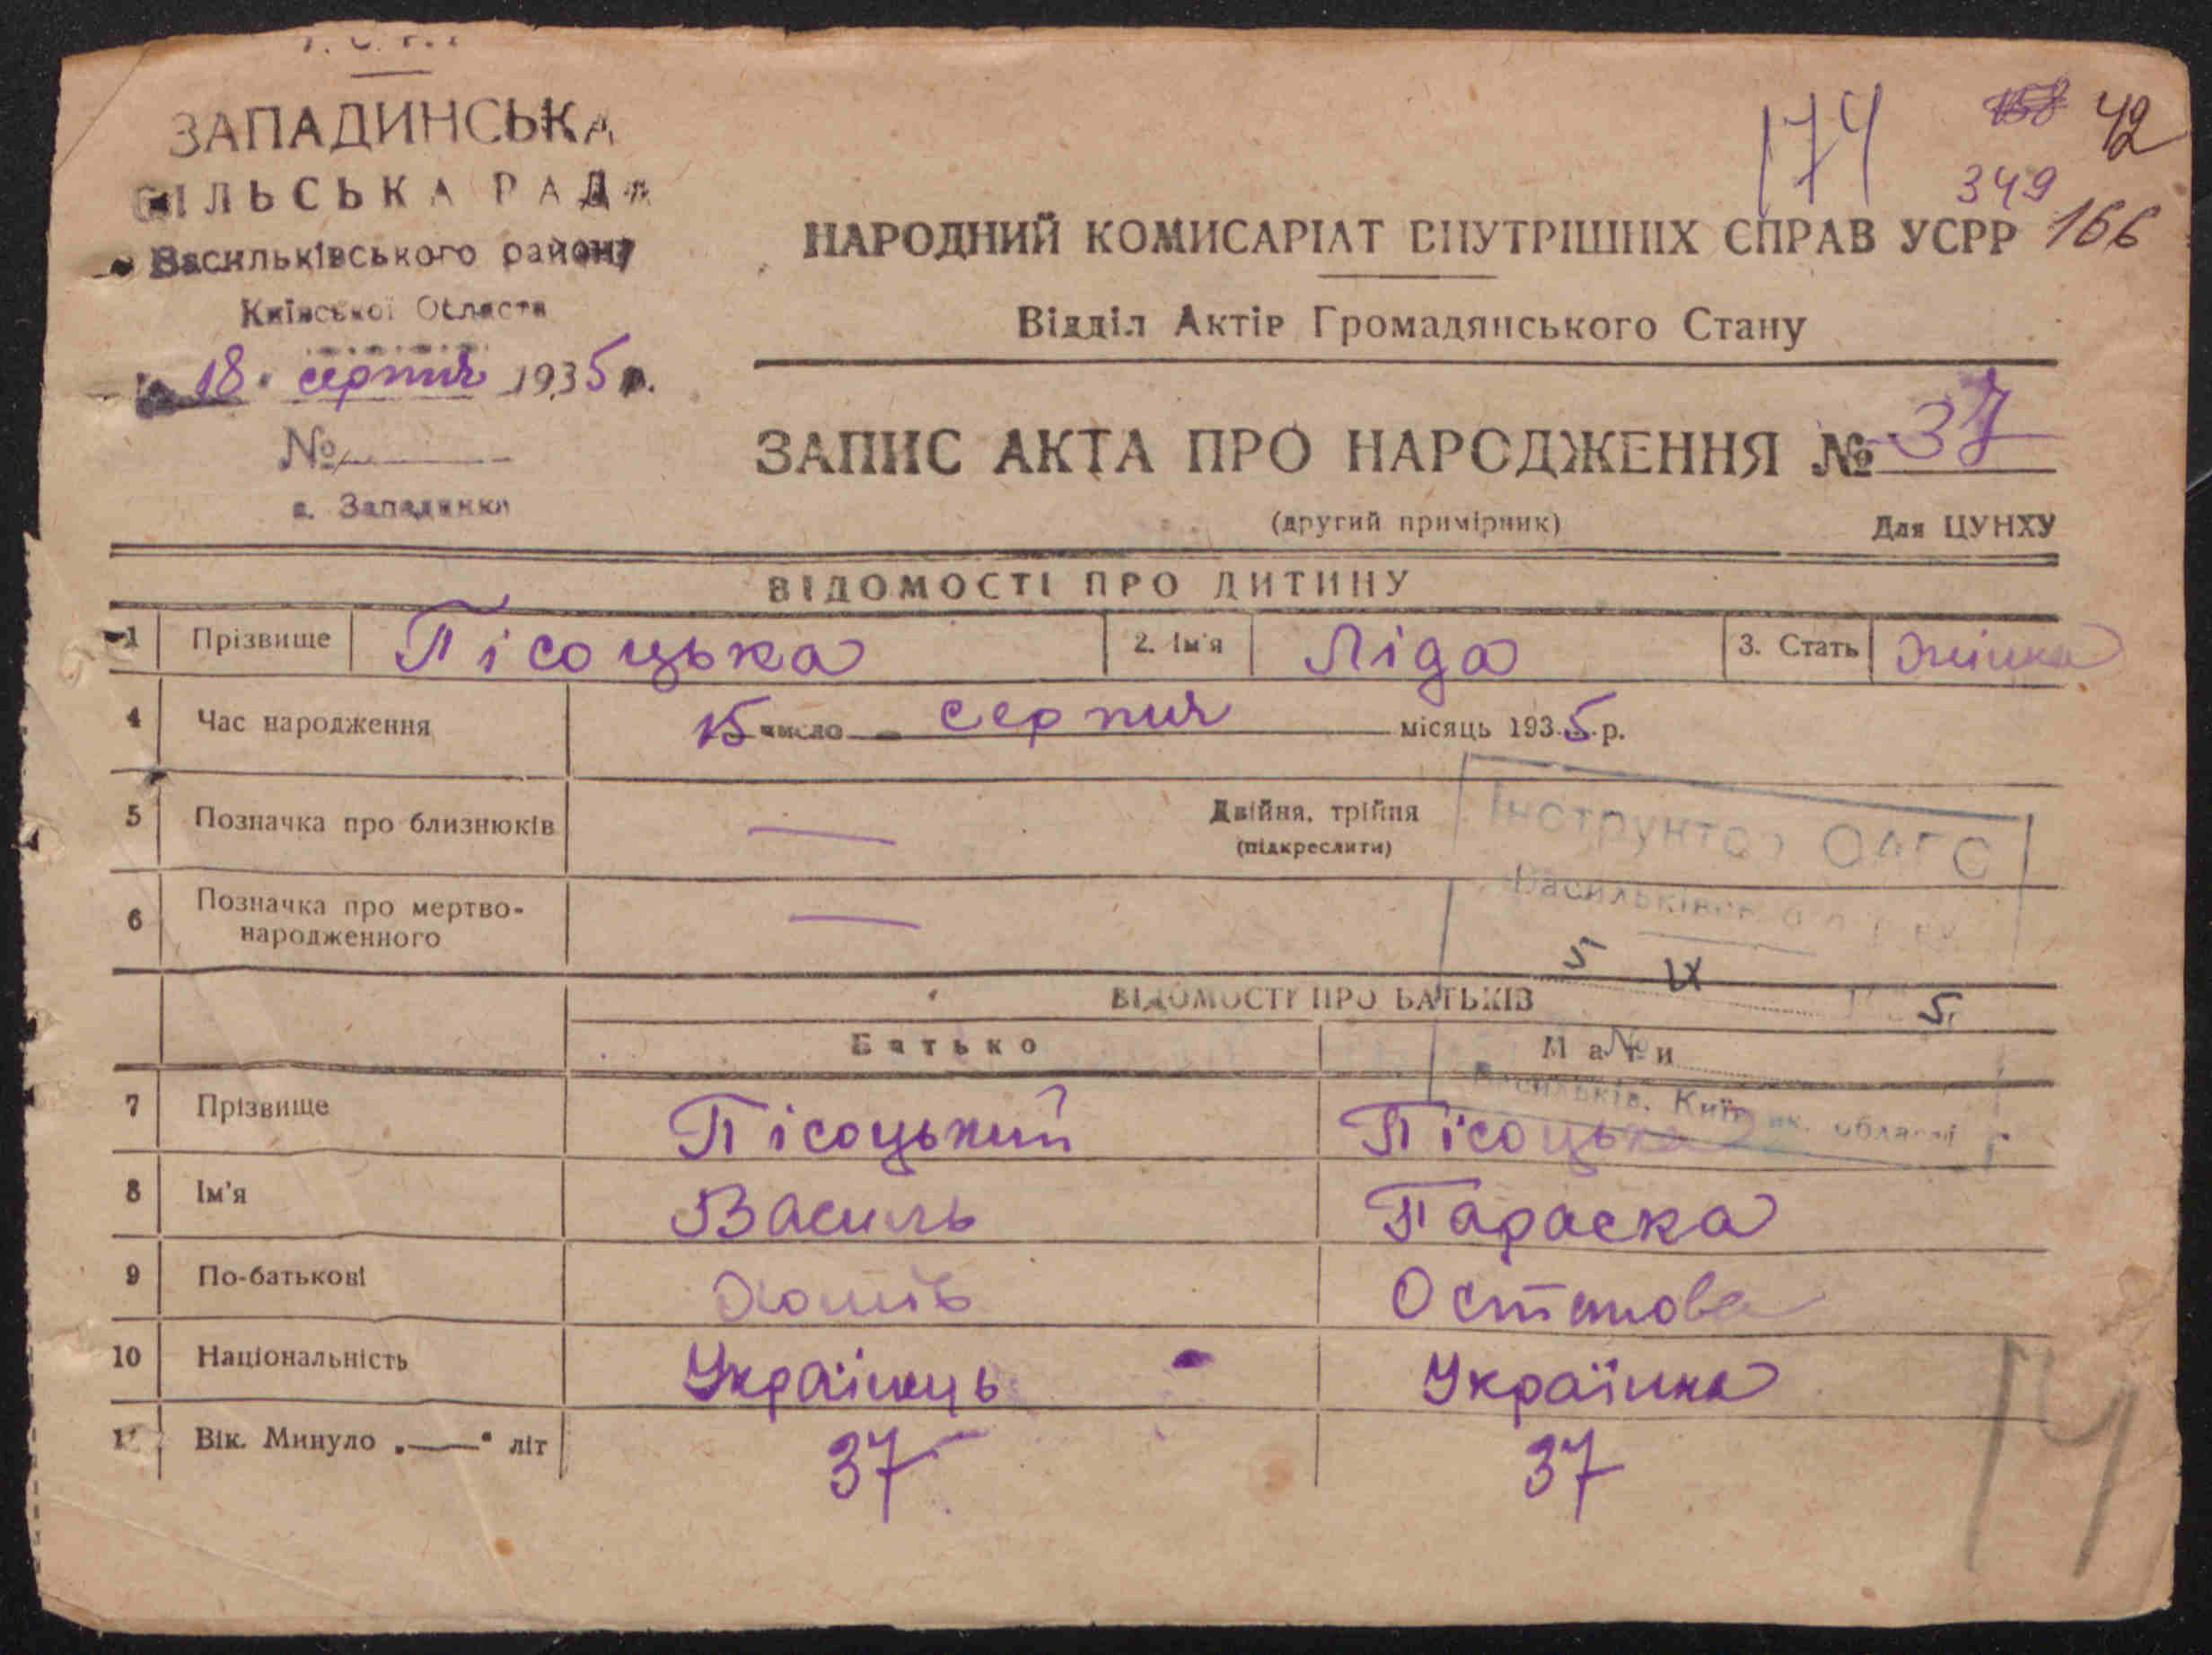 ЗАПАДИНСЬКА
СІЛЬСЬКА РАДА
Васильківського району
Київської Области
18 серпня 1935 р.
№
с. Западинка
174
42
349
166
НАРОДНИЙ КОМИСАРІАТ ВНУТРІШНІХ СПРАВ УСРР
Відділ Актів Громадянського Стану
ЗАПИС АКТА ПРО НАРОДЖЕННЯ № 37
(другий примірник) Для ЦУНХУ
ВІДОМОСТІ ПРО ДИТИНУ
1 Прізвище Пісоцька 2. Ім'я Ліда 3. Стать Жінка
4 Час народження 15 число серпня місяць 1935 р.
5 Позначка про близнюків — Двійня, трійня
(підкреслити)
Інструктор ОАГС
6 Позначка про мертво-
народженного —
5 IX 5
ВІДОМОСТІ ПРО БАТЬКІВ
Батько Мати
№
7 Прізвище Пісоцький Пісоцька
Васильків, Київськ. області
8 Ім'я Василь Параска
9 По-батькові Хомів Остапова
10 Національність Українець Українка
11 Вік. Минуло „—“ літ 37 37
14